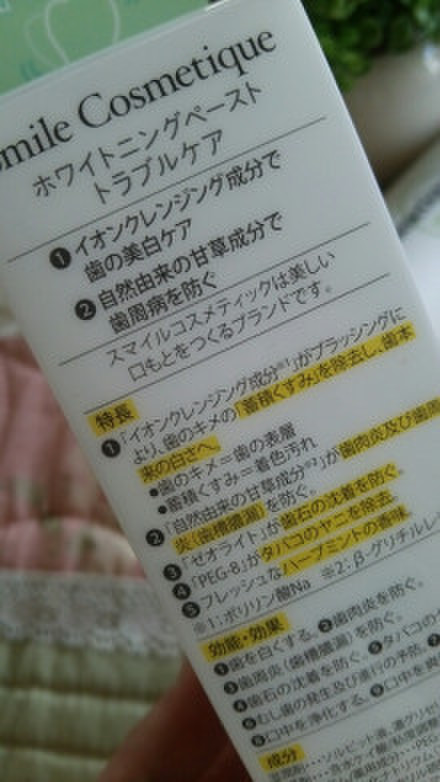 Smile Cosmetique
ホワイトニングペースト
トラブルケア
❶イオンクレンジング成分で
歯の美白ケア
❷自然由来の甘草成分で
歯周病を防ぐ
スマイルコスメティックは美しい
口もとをつくるブランドです。
特長
❶「イオンクレンジング成分※1」がブラッシングに
より、歯のキメの「蓄積くすみ」を除去し、歯本
来の白さへ。
●歯のキメ=歯の表層
●蓄積くすみ=着色汚れ
❷「自然由来の甘草成分※2」が歯肉炎及び歯周
炎(歯槽膿漏)を防ぐ。
❸「ゼオライト」が歯石の沈着を防ぐ。
❹「PEG-8」がタバコのヤニを除去
❺フレッシュなハーブミントの香味
※1:ポリリン酸Na ※2:β-グリチルレ
効能・効果
❶歯を白くする。❷歯肉炎を防ぐ。
❸歯周炎(歯槽膿漏)を防ぐ。
❹歯石の沈着を防ぐ。❺タバコの
❻むし歯の発生及び進行の予防。
❽口中を浄化する。❾口中を爽
成分
ソルビット液、濃グリセ